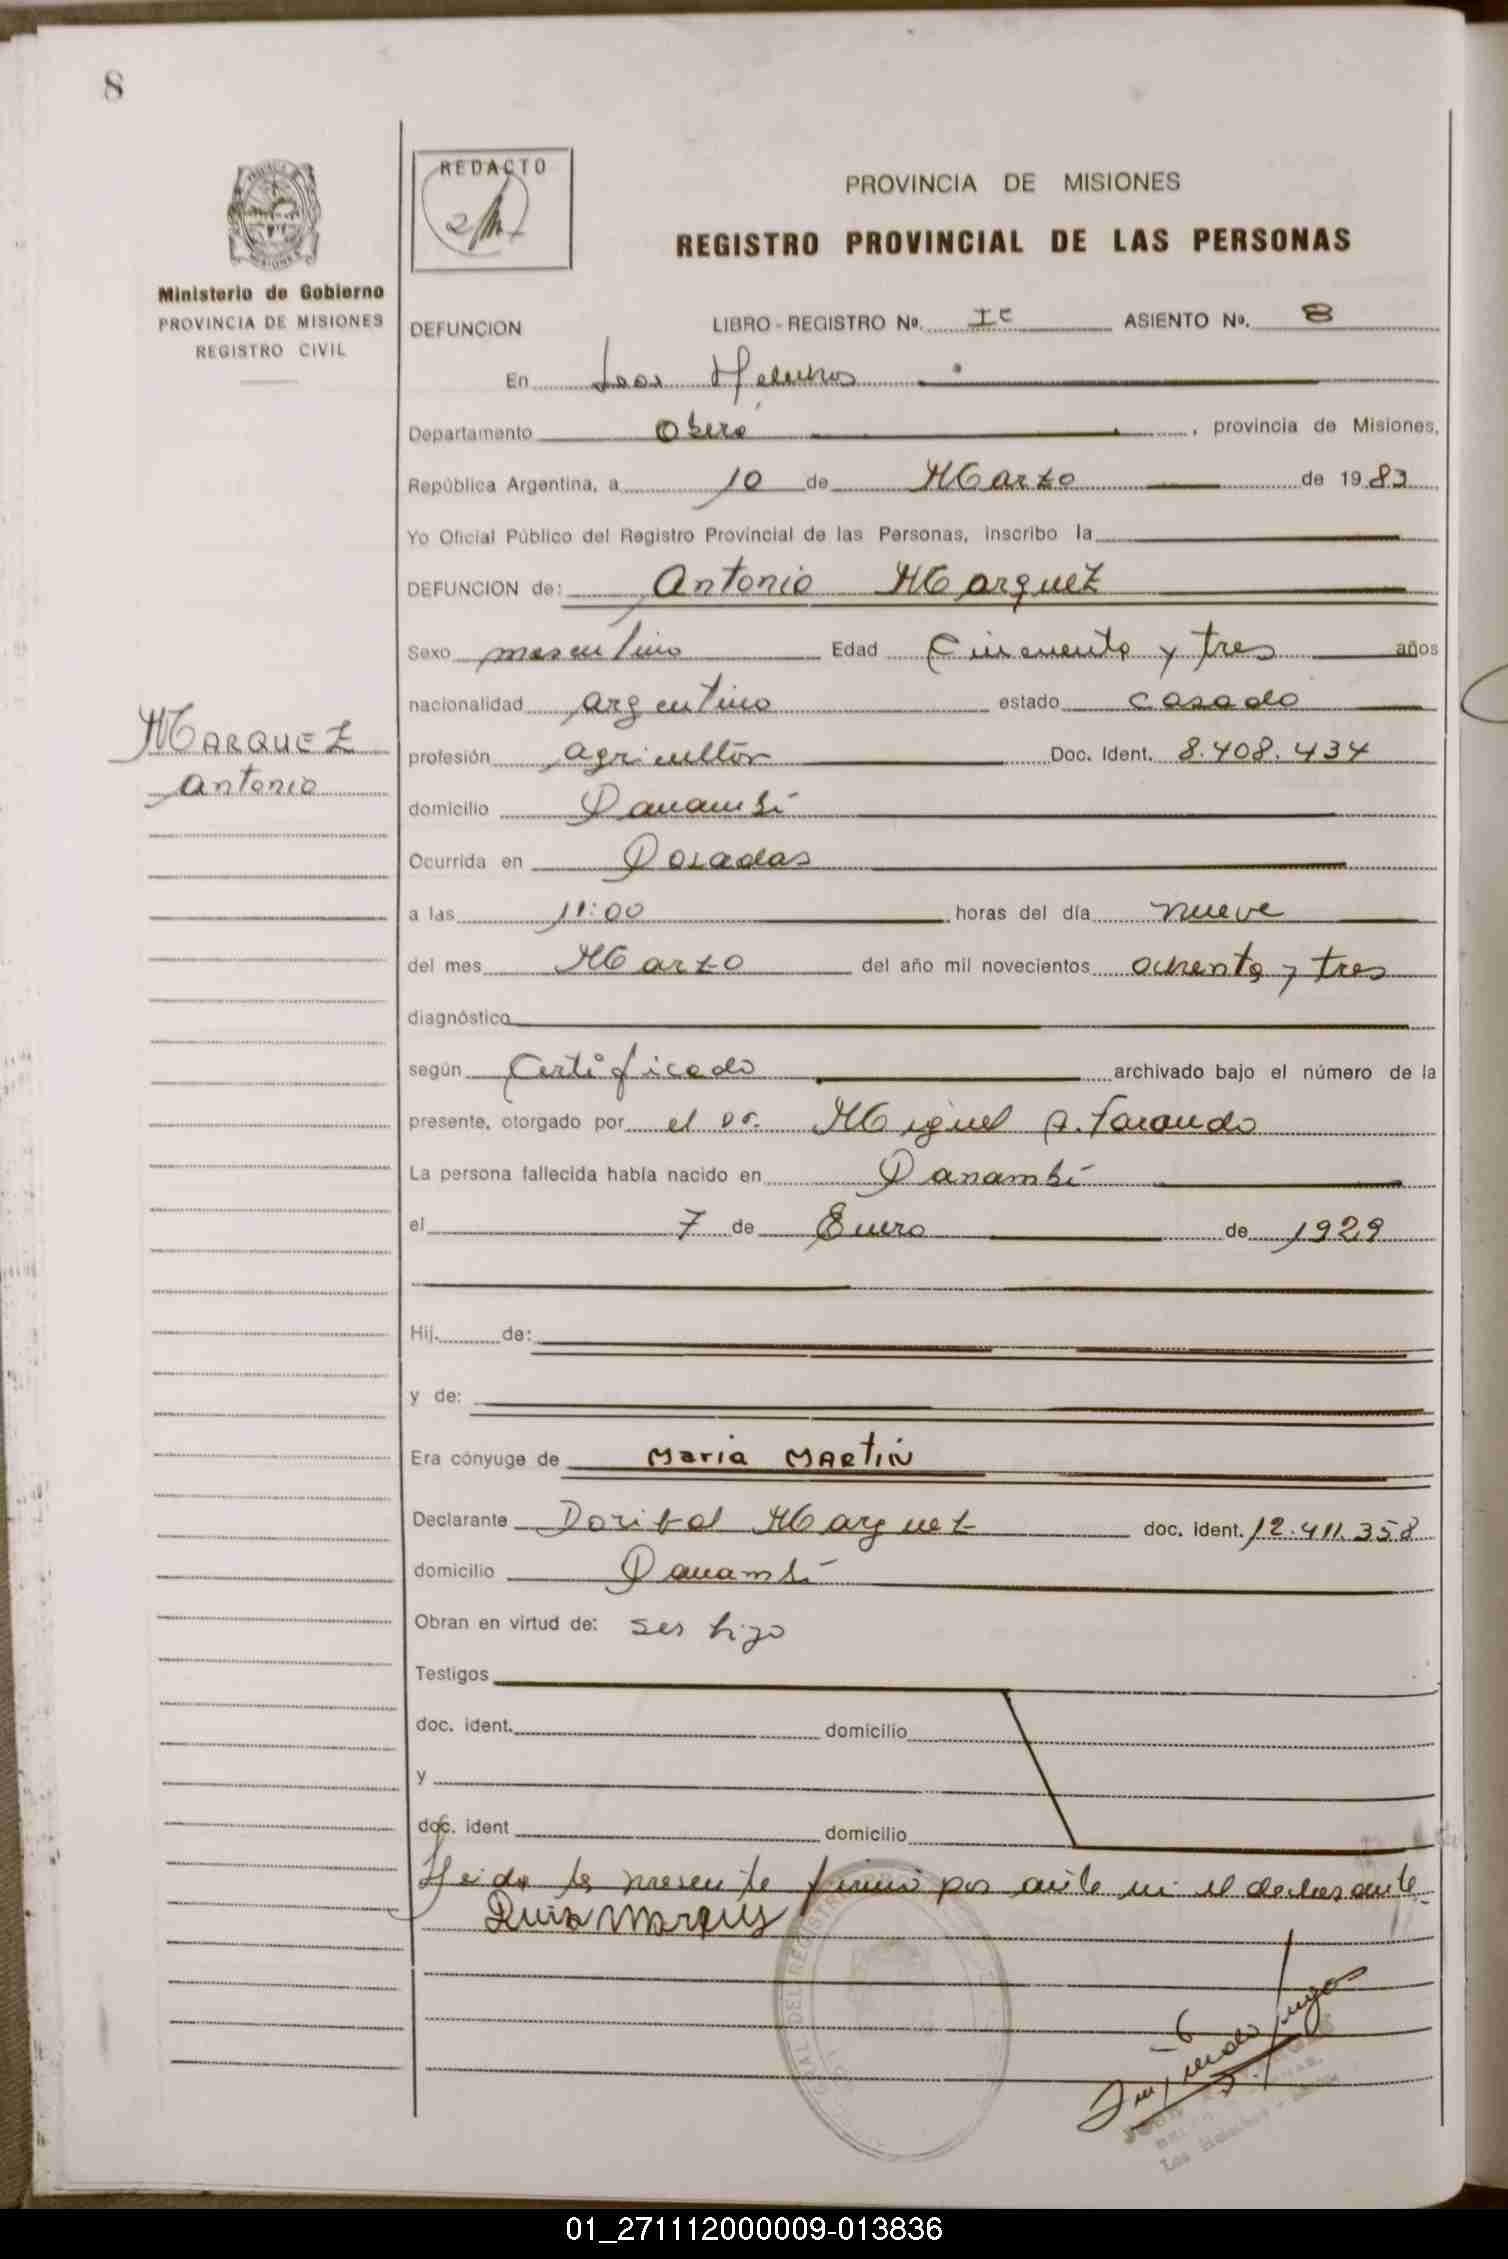 8
REDACTO
PROVINCIA DE MISIONES
REGISTRO PROVINCIAL DE LAS PERSONAS
Ministerio de Gobierno
PROVINCIA DE MISIONES
REGISTRO CIVIL
DEFUNCION LIBRO - REGISTRO Nº. Iº ASIENTO Nº. 8
En Los Helechos
Departamento Oberá, provincia de Misiones,
República Argentina, a 10 de Marzo de 1983
Yo Oficial Público del Registro Provincial de las Personas, inscribo la
DEFUNCION de: Antonio Marquez
Sexo masculino Edad Cincuenta y tres años
nacionalidad argentino estado casado
MARQUEZ
Antonio
profesión agricultor Doc. Ident. 8.408.434
domicilio Panambí
Ocurrida en Posadas
a las 11:00 horas del día nueve
del mes Marzo del año mil novecientos ochenta y tres
diagnóstico
según Certificado archivado bajo el número de la
presente, otorgado por el Dr. Miguel A.
La persona fallecida había nacido en Panambí
el 7 de Enero de 1929
Hij. de:
y de:
Era cónyuge de Maria MARtiN
Declarante Marquez doc. ident. 12.411.358
domicilio Panambí
Obran en virtud de: ser hijo
Testigos
doc. ident. domicilio
y
doc. ident domicilio
Leida la presente firmó por ante mi el declarante.
01_271112000009-013836